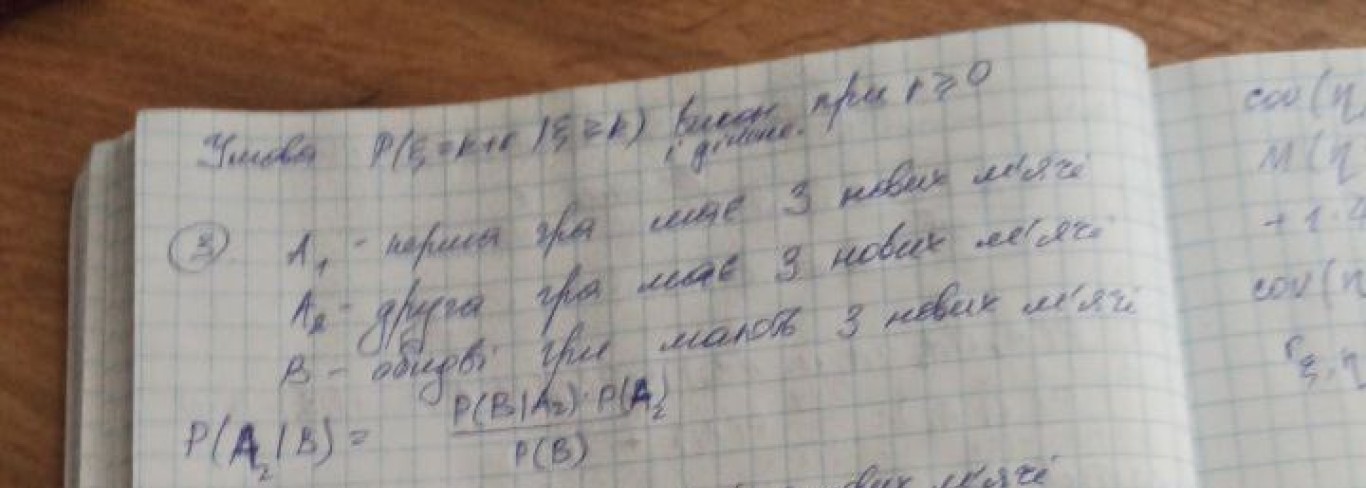 Умова P(ξ=k+r | ξ≥k) викон. при r≥0
і дійсно.
③ A₁ - перша гра має 3 нових м'ячі
A₂ - друга гра має 3 нових м'ячі
B - обидві гри мають 3 нових м'ячі
P(A₂|B) = P(B|A₂)·P(A₂) / P(B)
нових м'ячі
cov(η
M(η
+1·
cov(η
r ξ,η